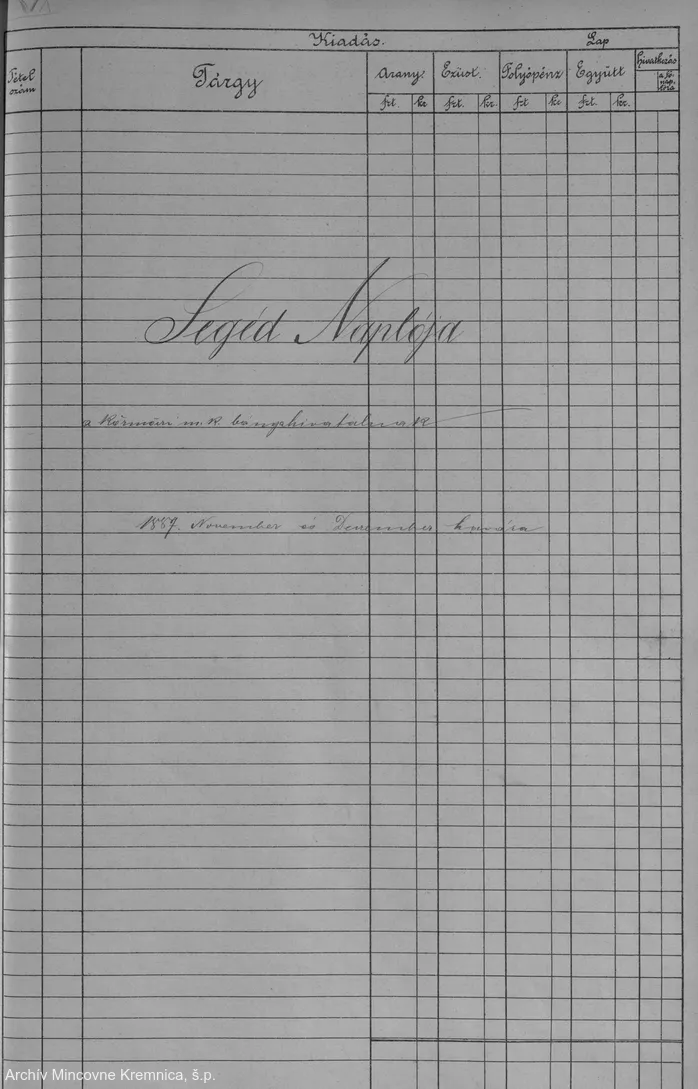 Kiadás. Lap
Tétel szám Tárgy Arany. Ezüst. Folyópénz Együtt hivatkozás
frt. kr. frt. kr. frt kr frt. kr.
Segéd Naplója
a körmöczi m. k. bányahivatalnak
November és December havára
Archív Mincovne Kremnica, š.p.